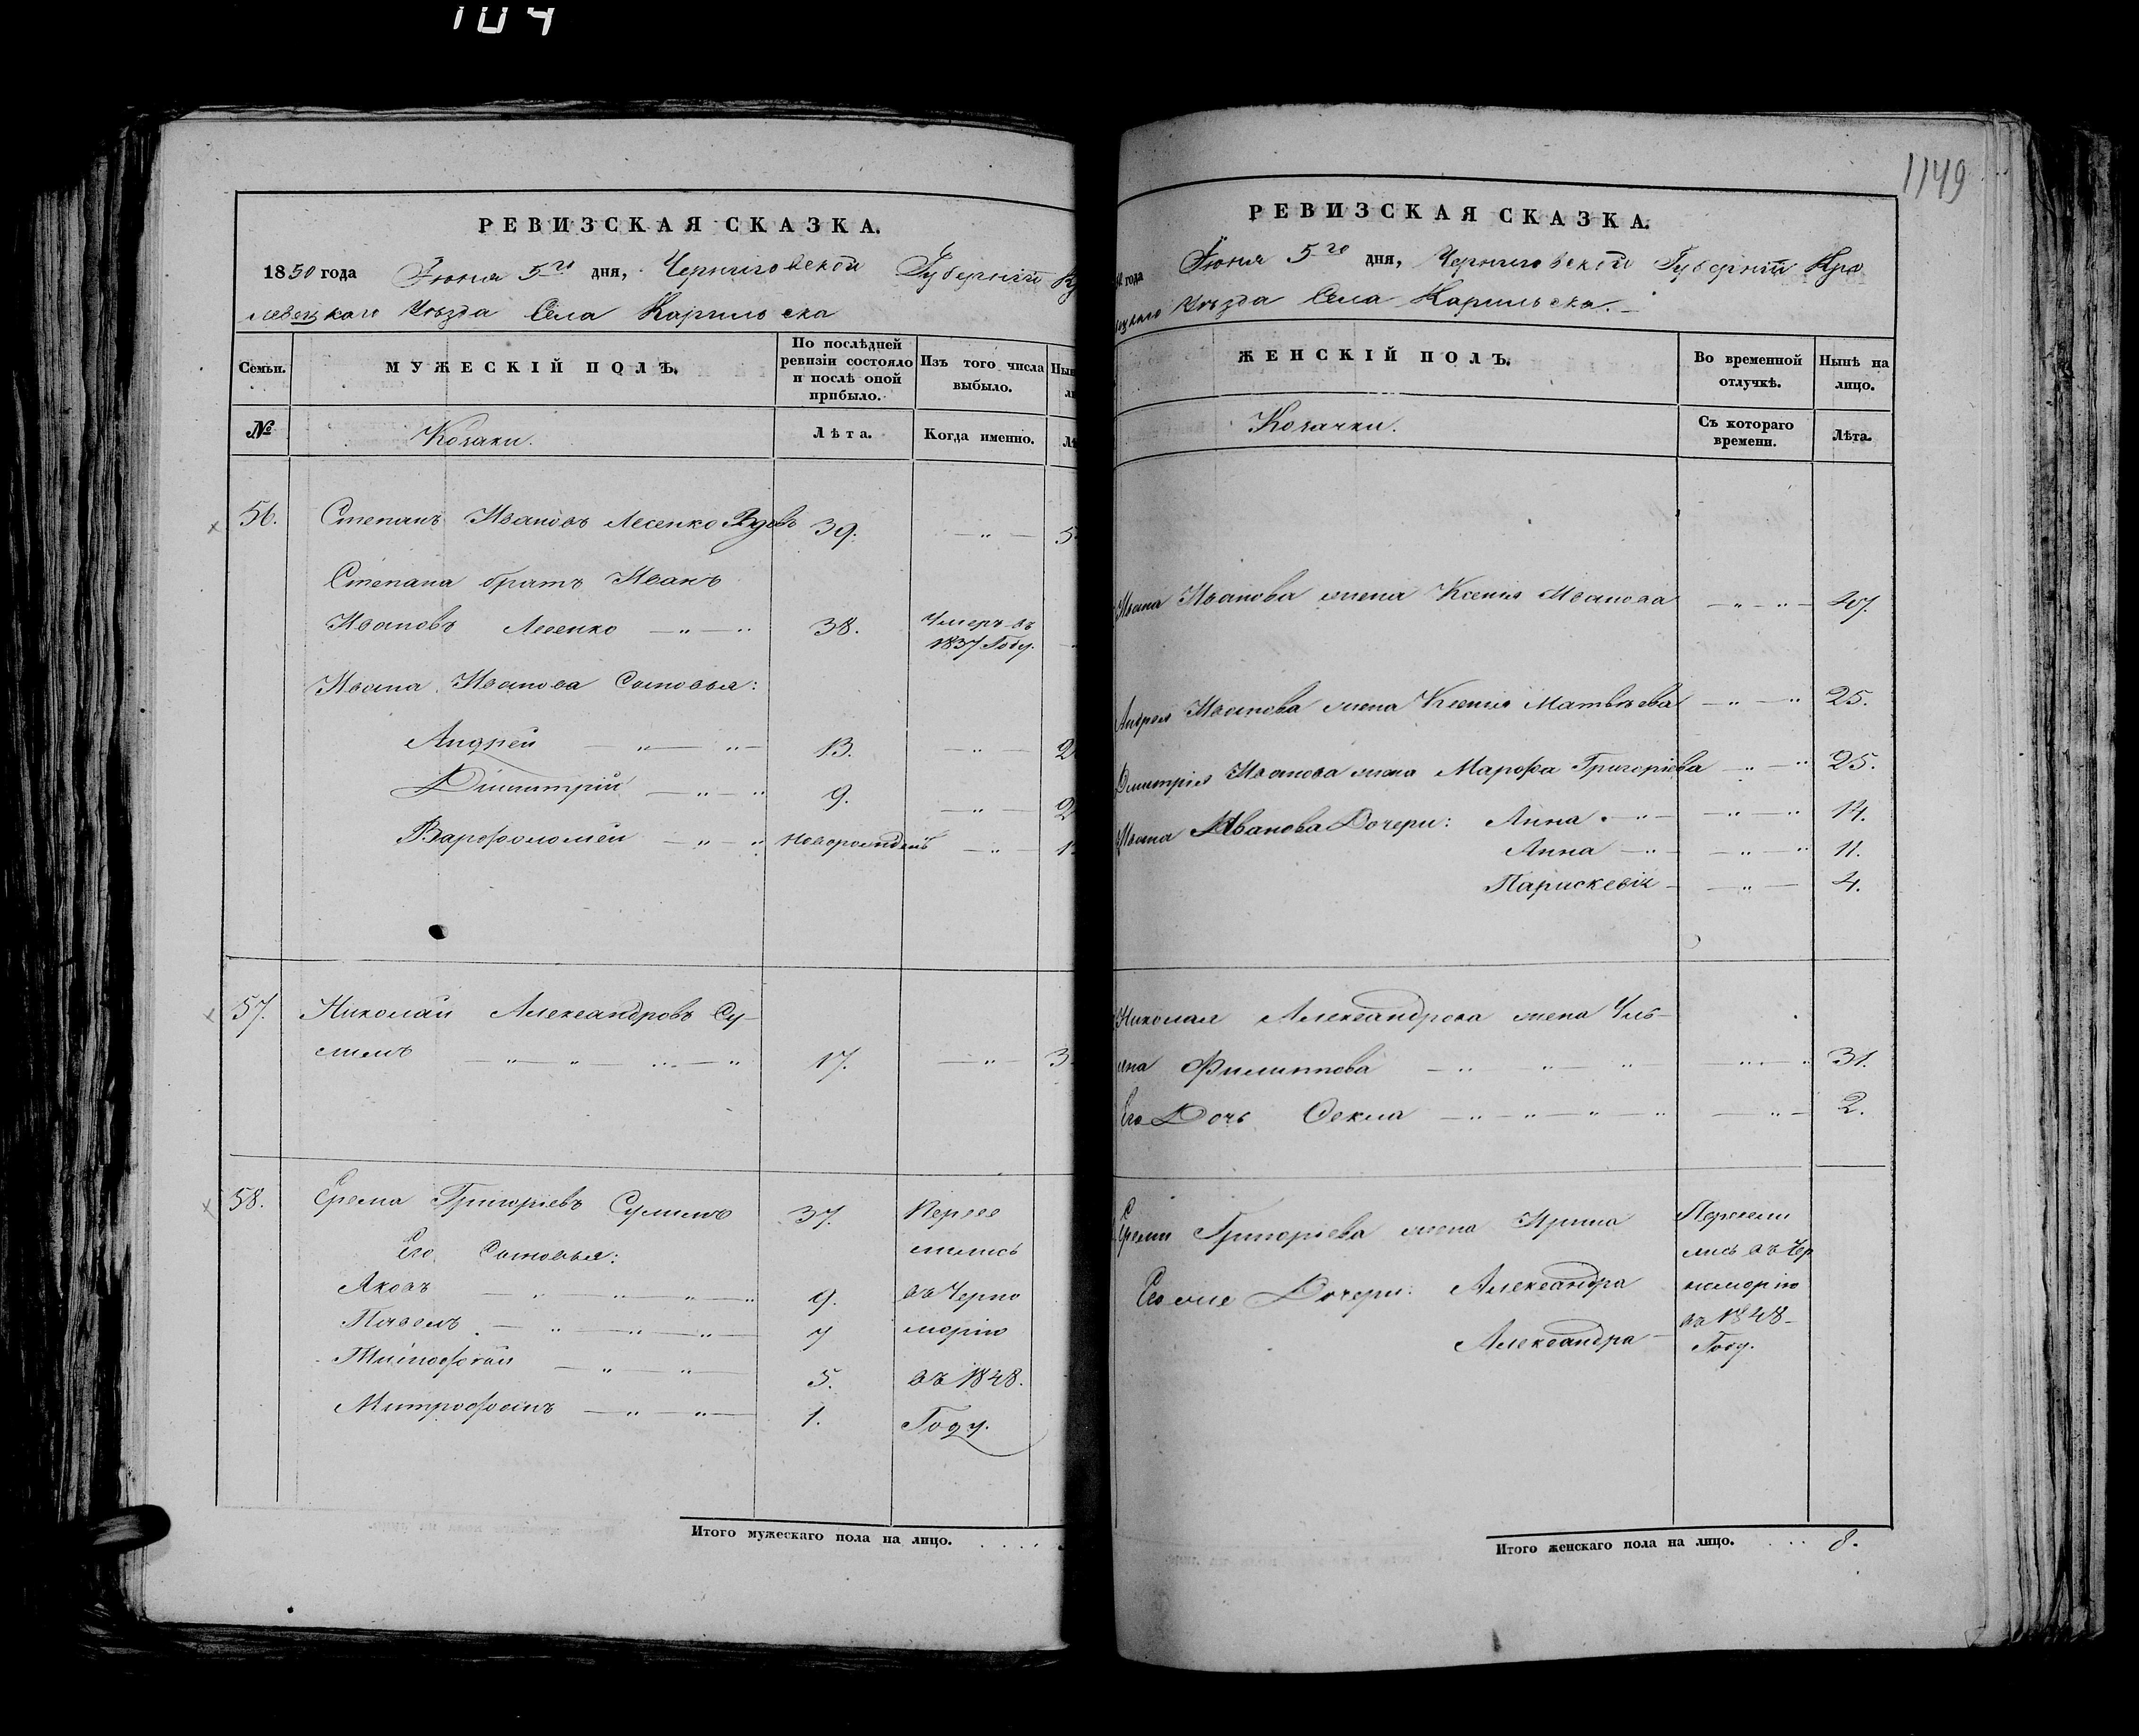 104
1149
РЕВИЗСКАЯ СКАЗКА.
1850 года Іюня 5го дня, Черниговской Губерніи
левецкаго Уѣзда Села Карильска
Семьи.
МУЖЕСКІЙ ПОЛЪ.
По послѣдней ревизіи состояло и послѣ оной прибыло.
Изъ того числа выбыло.
№
Козаки.
Лѣта.
Когда именно.
56. Степанъ Ивановъ Лесенко Вдовъ 39. — „ —
Степана братъ Иванъ
Ивановъ Лесенко — „ — „ 38. Умеръ въ 1837 Году.
Ивана Иванова Сыновья:
Андрей — „ — „ — 13. — „ —
Димитрій — „ — „ 9. — „ —
Варфоломей — „ — „ новорожденъ — „ —
57. Николай Александровъ Су-
лимъ — „ — „ — „ 17. — „ —
58. Ерема Григорьевъ Сулимъ 37. Пересе
Его Сыновья: лились
Яковъ — „ — „ — „ — „ 9. въ Черно
Павелъ — „ — „ — „ — 7 морію
Тимофей — „ — „ — 5. въ 1848.
Митрофанъ — „ — „ — 1. Году.
Итого мужескаго пола на лицо.
РЕВИЗСКАЯ СКАЗКА.
года Іюня 5го дня, Черниговской Губерніи Кро
Уѣзда Села Карильска. —
ЖЕНСКІЙ ПОЛЪ.
Во временной отлучкѣ.
Нынѣ на лицо.
Козачки.
Съ котораго времени.
Лѣта.
Ивана Иванова жена Ксенія Иванова — „ — „ — 47.
Андрея Иванова жена Ксенія Матвѣева — „ — „ 25.
Дмитрія Иванова жена Марфа Григоріева — „ — „ 25.
Ивана Иванова Дочери: Анна — „ — — „ — „ 14.
Анна — „ — — „ — „ 11.
Параскевія — — „ — 4.
Николая Александрова жена Уль-
яна Филиппова — „ „ „ — „ — „ 31.
Его Дочь Фекла — „ — „ — „ „ — „ — 2.
Еремы Григоріева жена Ирина Пересели
лись въ Чер
Его же Дочери: Александра номорію
въ 1848-
Александра — Году.
Итого женскаго пола на лицо. . . . 8.